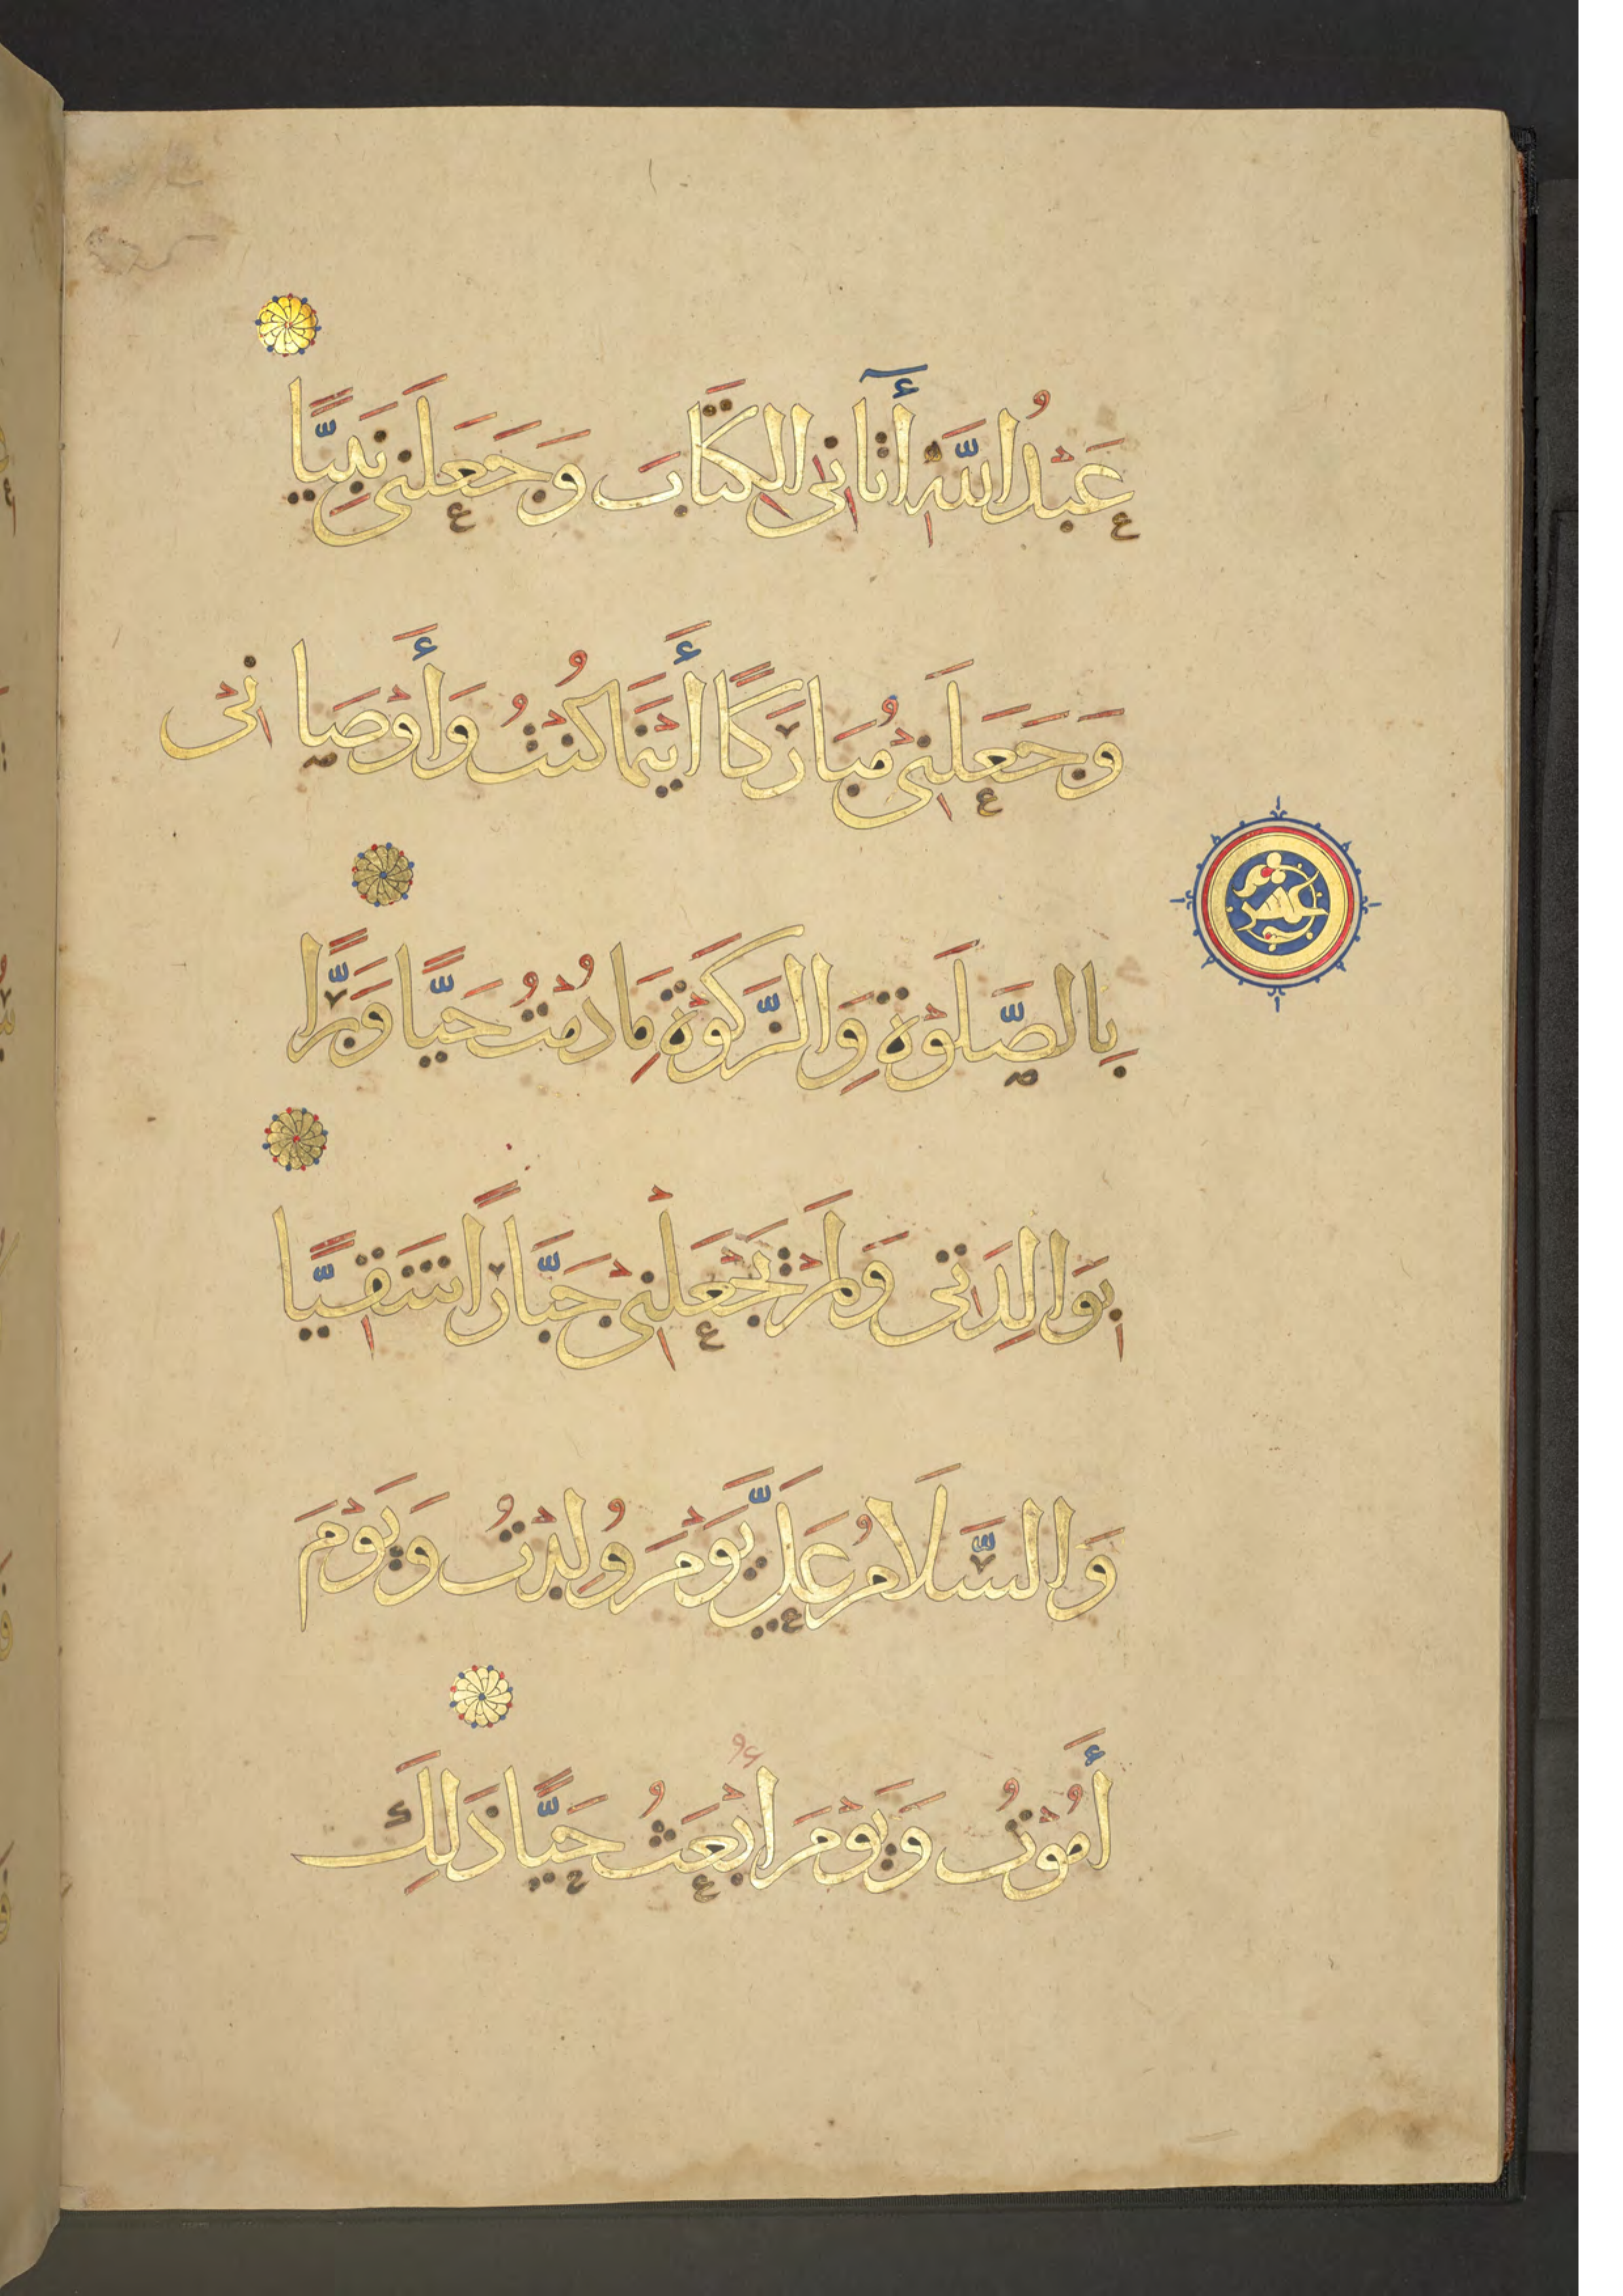 عَبْدُ اللَّهِ أٓتَانِي الْكِتَابَ وَجَعَلَنِي نَبِيًّا
وَجَعَلَنِي مُبَارَكًا أَيْنَمَا كُنْتُ وَأَوْصَانِي
عشر
بِالصَّلَوةِ وَالزَّكَوةِ مَا دُمْتُ حَيًّا وَبَرًّا
بِوَالِدَتِي وَلَمْ يَجْعَلْنِي جَبَّارًا شَقِيًّا
وَالسَّلَامُ عَلَيَّ يَوْمَ وُلِدْتُ وَيَوْمَ
أَمُوْتُ وَيَوْمَ أُبْعَثُ حَيًّا ذَلِكَ